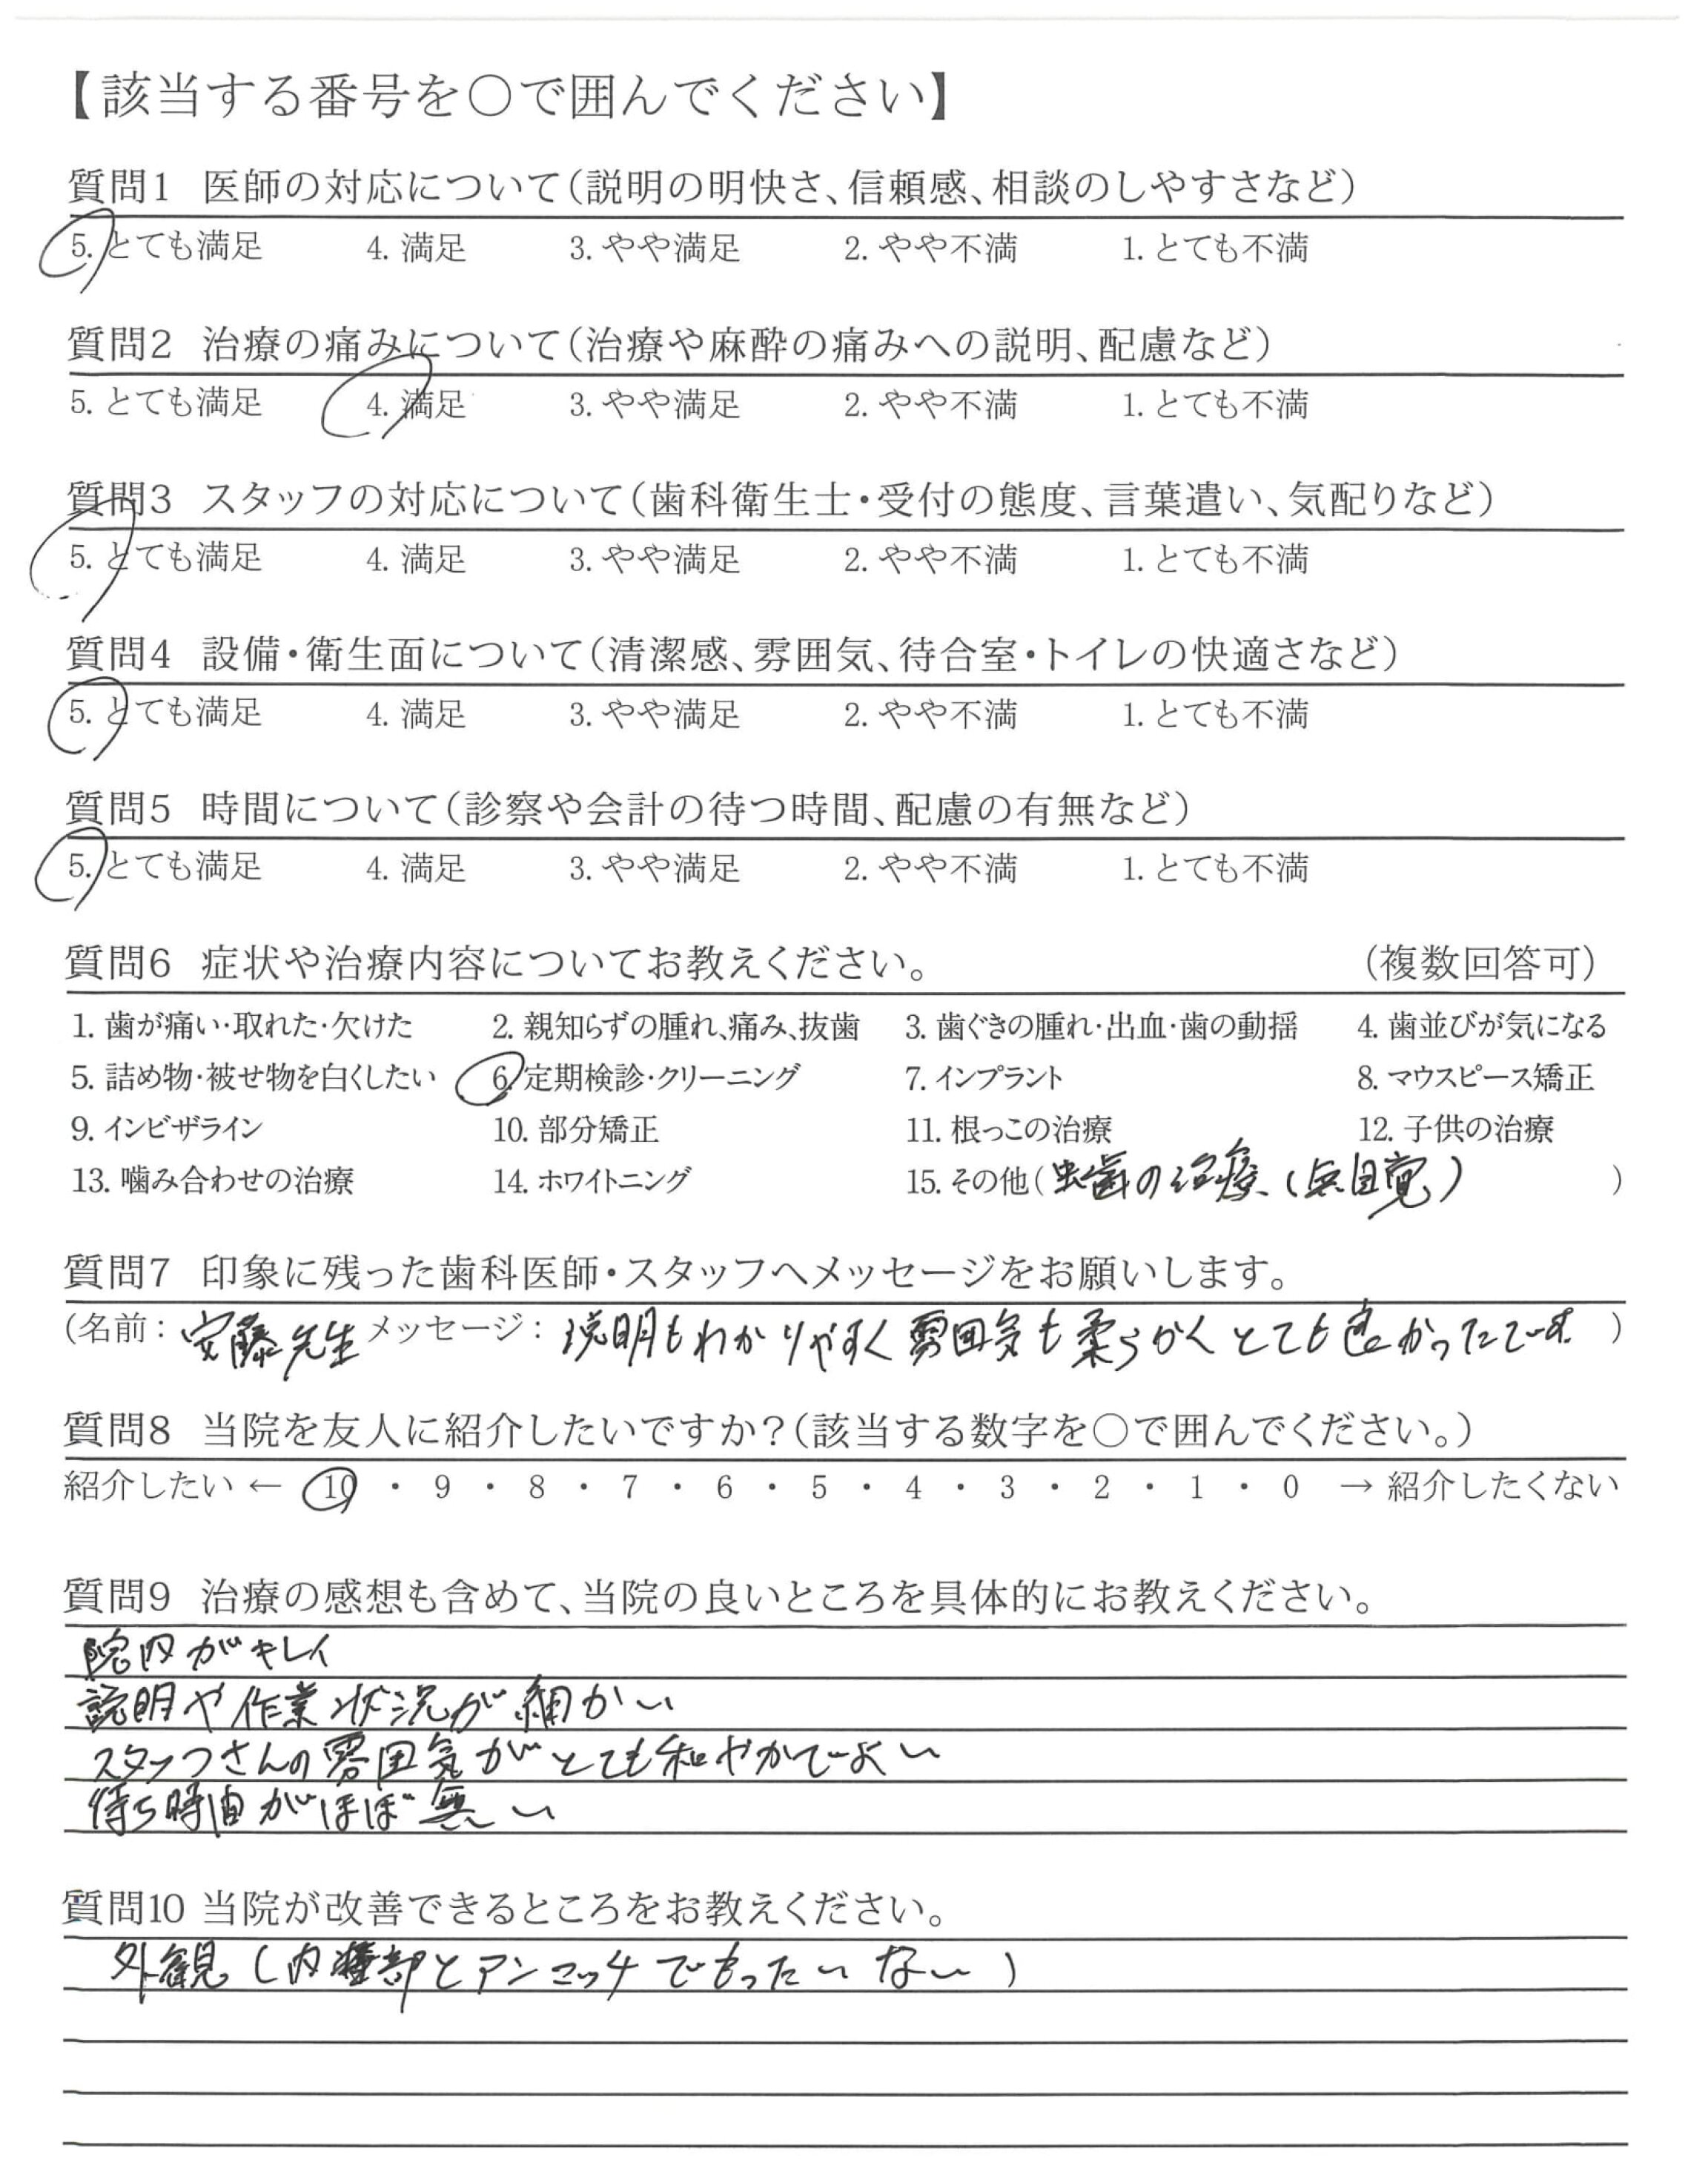 【該当する番号を○で囲んでください】
質問1 医師の対応について(説明の明快さ、信頼感、相談のしやすさなど)
5. とても満足 4. 満足 3. やや満足 2. やや不満 1. とても不満
質問2 治療の痛みについて(治療や麻酔の痛みへの説明、配慮など)
5. とても満足 4. 満足 3. やや満足 2. やや不満 1. とても不満
質問3 スタッフの対応について(歯科衛生士・受付の態度、言葉遣い、気配りなど)
5. とても満足 4. 満足 3. やや満足 2. やや不満 1. とても不満
質問4 設備・衛生面について(清潔感、雰囲気、待合室・トイレの快適さなど)
5. とても満足 4. 満足 3. やや満足 2. やや不満 1. とても不満
質問5 時間について(診察や会計の待つ時間、配慮の有無など)
5. とても満足 4. 満足 3. やや満足 2. やや不満 1. とても不満
質問6 症状や治療内容についてお教えください。 (複数回答可)
1. 歯が痛い・取れた・欠けた 2. 親知らずの腫れ、痛み、抜歯 3. 歯ぐきの腫れ・出血・歯の動揺 4. 歯並びが気になる
5. 詰め物・被せ物を白くしたい 6. 定期検診・クリーニング 7. インプラント 8. マウスピース矯正
9. インビザライン 10. 部分矯正 11. 根っこの治療 12. 子供の治療
13. 噛み合わせの治療 14. ホワイトニング 15. その他(虫歯の治療(無自覚) )
質問7 印象に残った歯科医師・スタッフへメッセージをお願いします。
(名前: 安藤先生 メッセージ: 説明もわかりやすく雰囲気も柔らかくとても良かったです )
質問8 当院を友人に紹介したいですか?(該当する数字を○で囲んでください。)
紹介したい ← 10 ・ 9 ・ 8 ・ 7 ・ 6 ・ 5 ・ 4 ・ 3 ・ 2 ・ 1 ・ 0 → 紹介したくない
質問9 治療の感想も含めて、当院の良いところを具体的にお教えください。
院内がキレイ
説明や作業状況が細かい
スタッフさんの雰囲気がとても和やかでよい
待ち時間がほぼ無い
質問10 当院が改善できるところをお教えください。
外観(内部とアンマッチでもったいない)